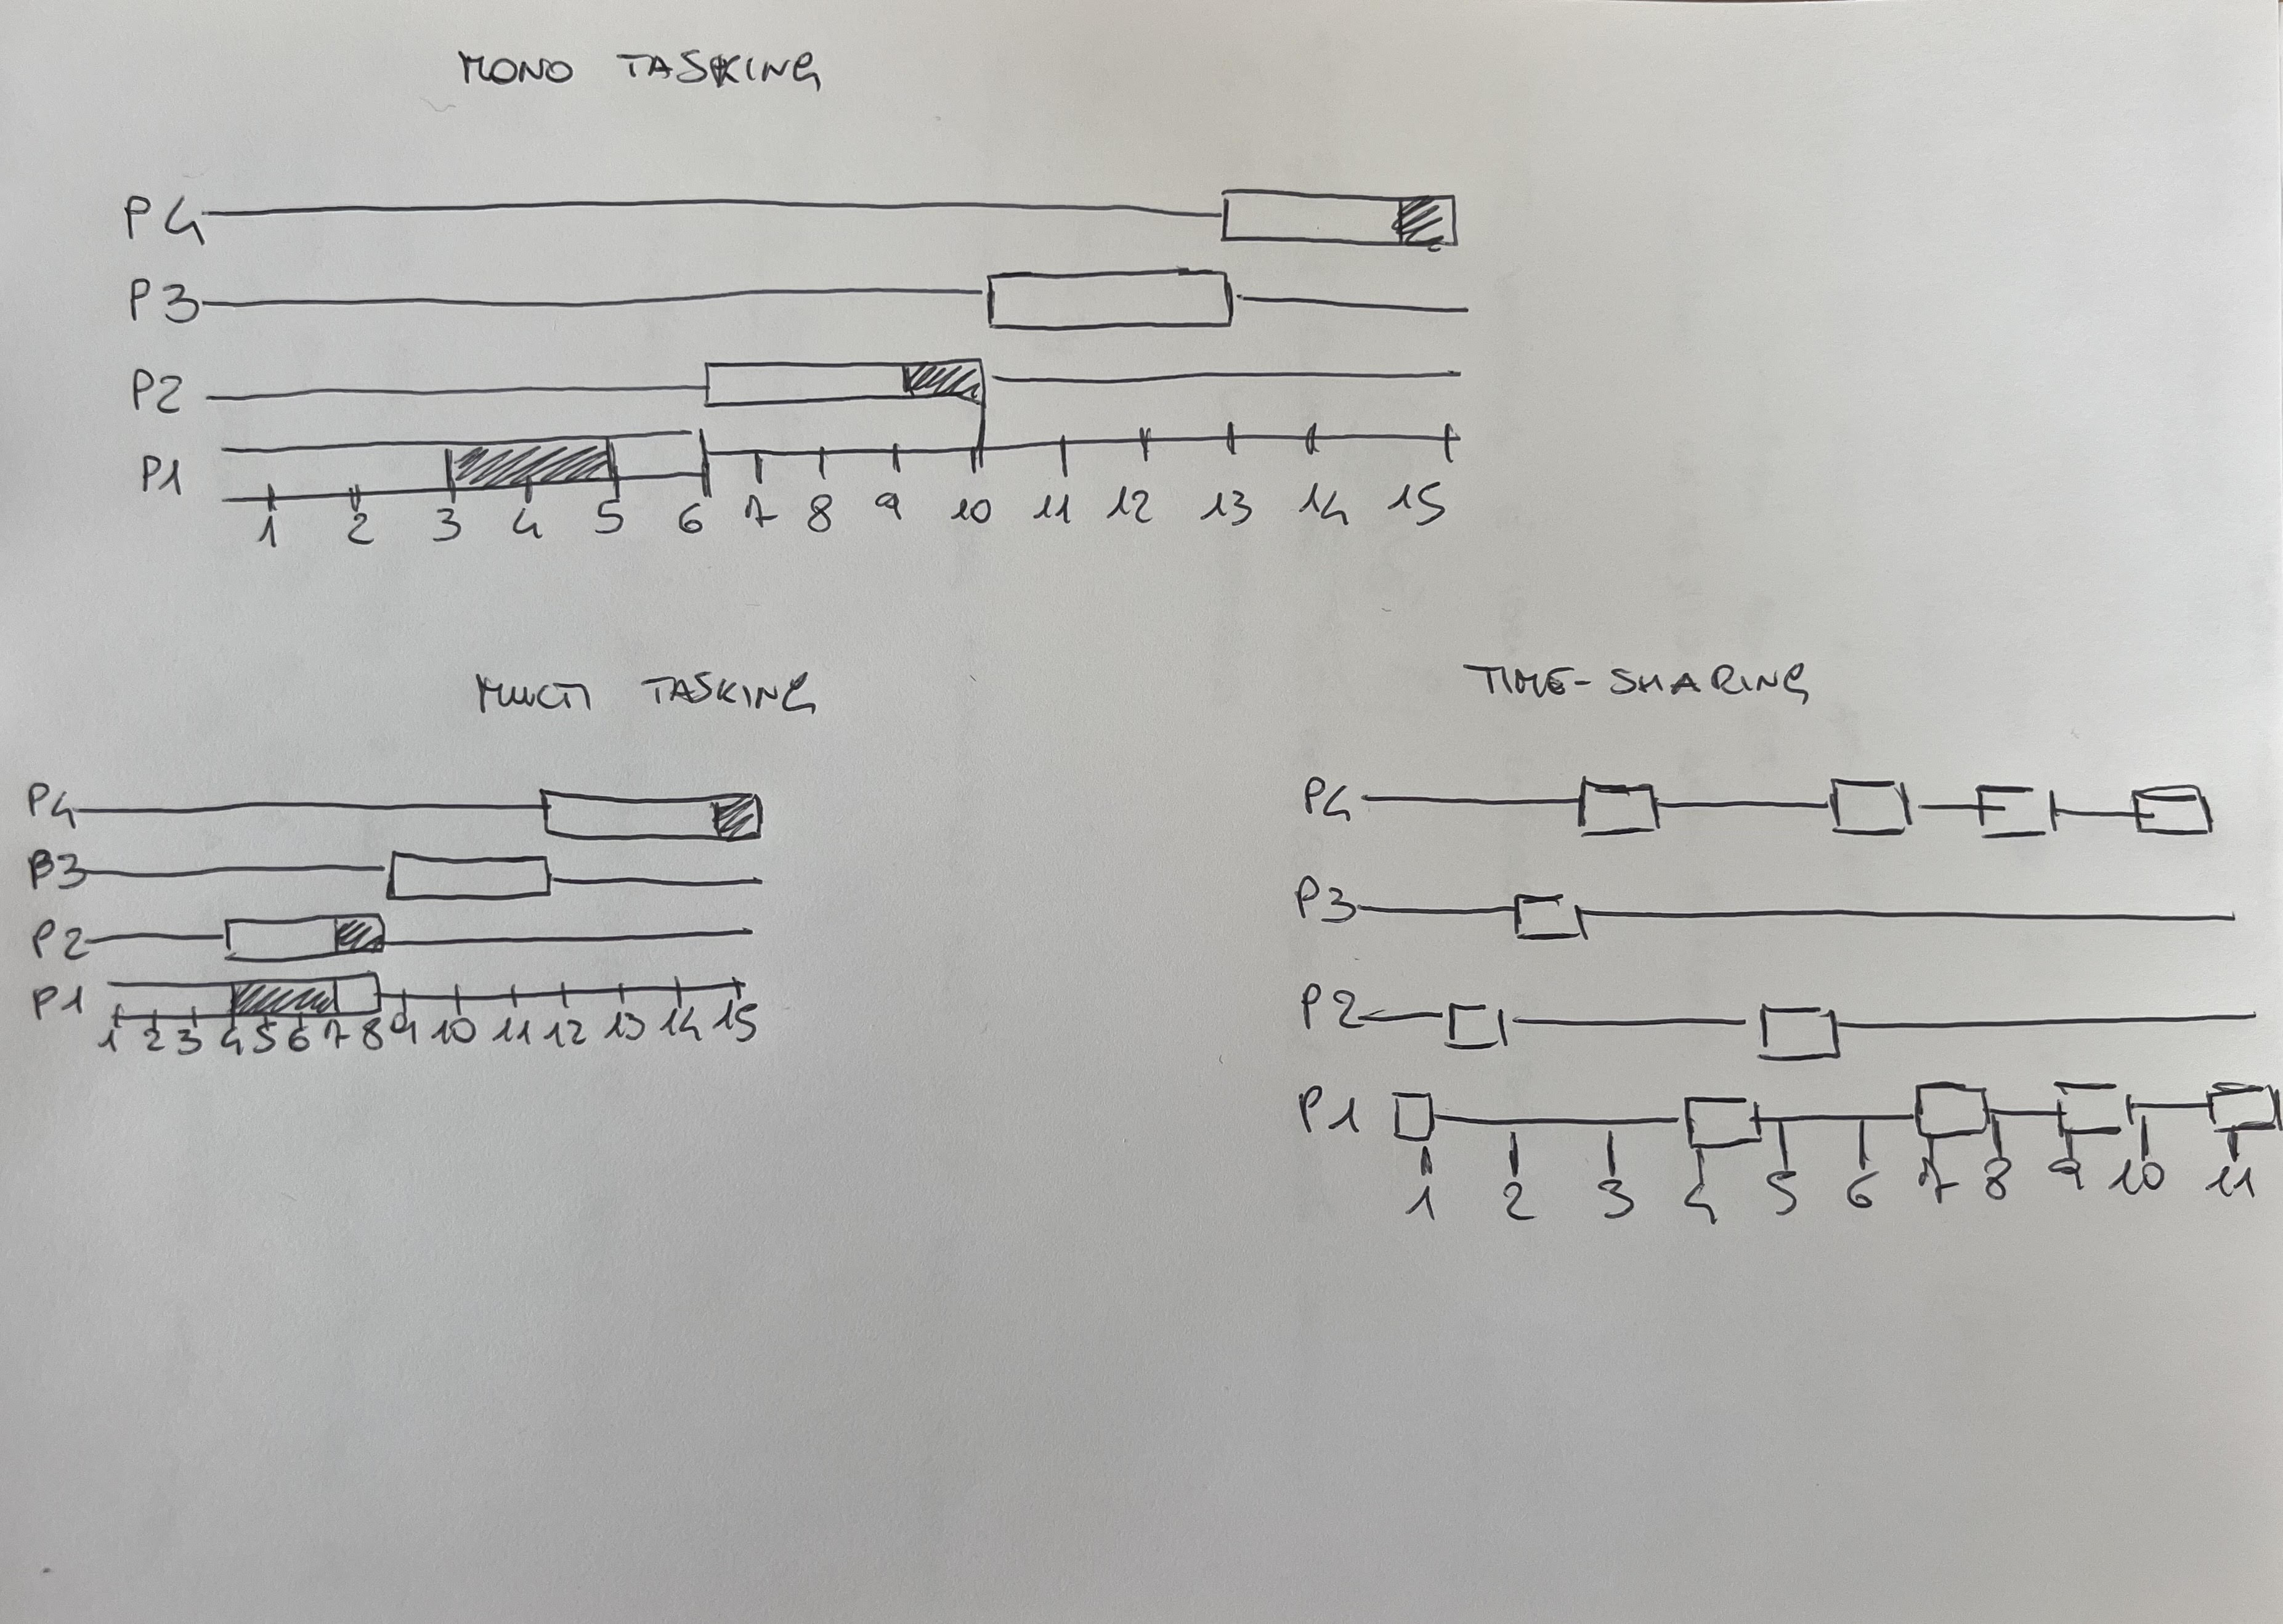 MONO TASKING
P4
P3
P2
P1
1 2 3 4 5 6 7 8 9 10 11 12 13 14 15
MULTI TASKING
P4
P3
P2
P1
1 2 3 4 5 6 7 8 9 10 11 12 13 14 15
TIME-SHARING
P4
P3
P2
P1
1 2 3 4 5 6 7 8 9 10 11